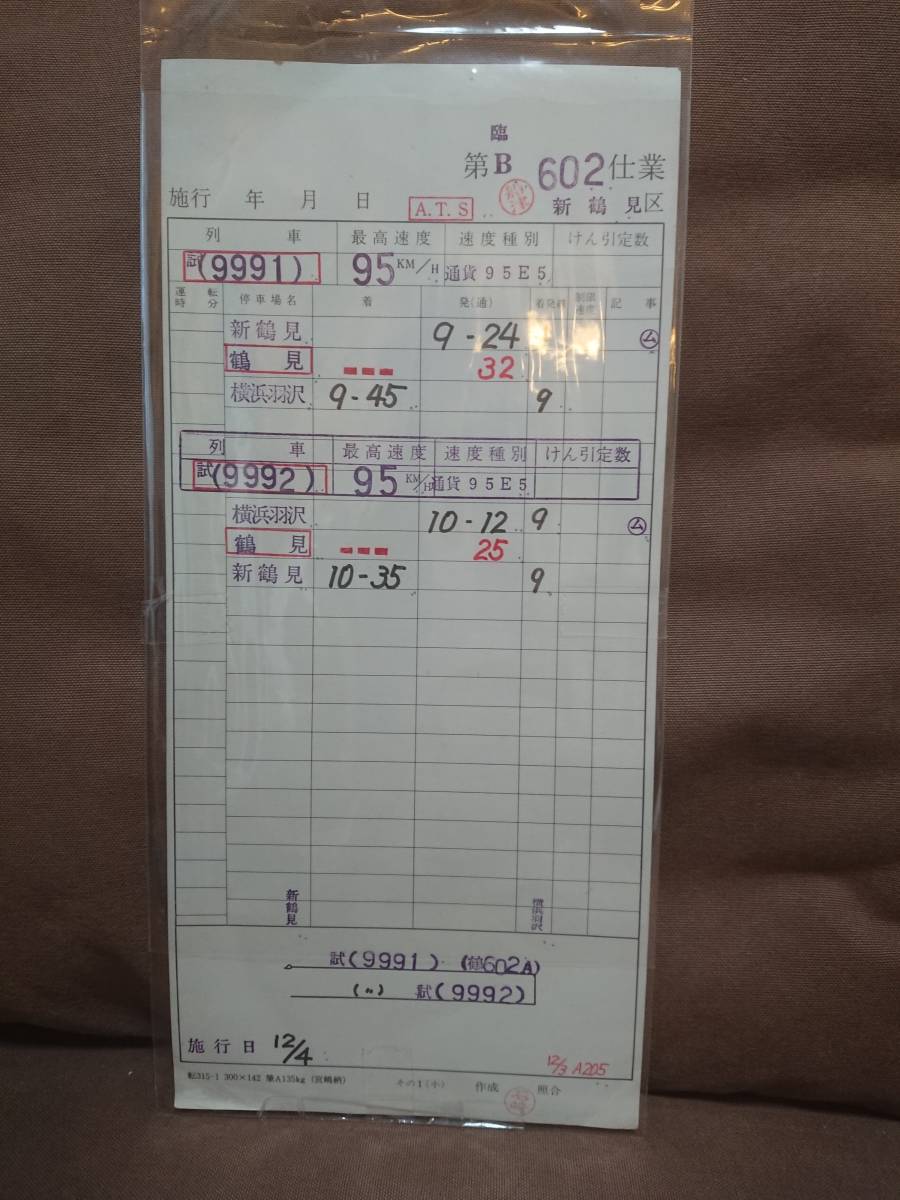 臨
第B 602仕業
施行 年 月 日 A.T.S 新鶴見区
列車 最高速度 速度種別 けん引定数
試(9991) 95 KM/H 通貨95E5
運転時分 停車場名 着 発(通) 着発線 制限速度 記事
新鶴見 9-24 ㋰
鶴見 32
横浜羽沢 9-45 9
列車 最高速度 速度種別 けん引定数
試(9992) 95 KM/H 通貨95E5
横浜羽沢 10-12 9 ㋰
鶴見 25
新鶴見 10-35 9
新鶴見 横浜羽沢
試(9991) (鶴602A)
(〃) 試(9992)
施行日 12/4
12/3 A205
転315-1 300×142 (宮嶋納) その1(小) 作成 照合